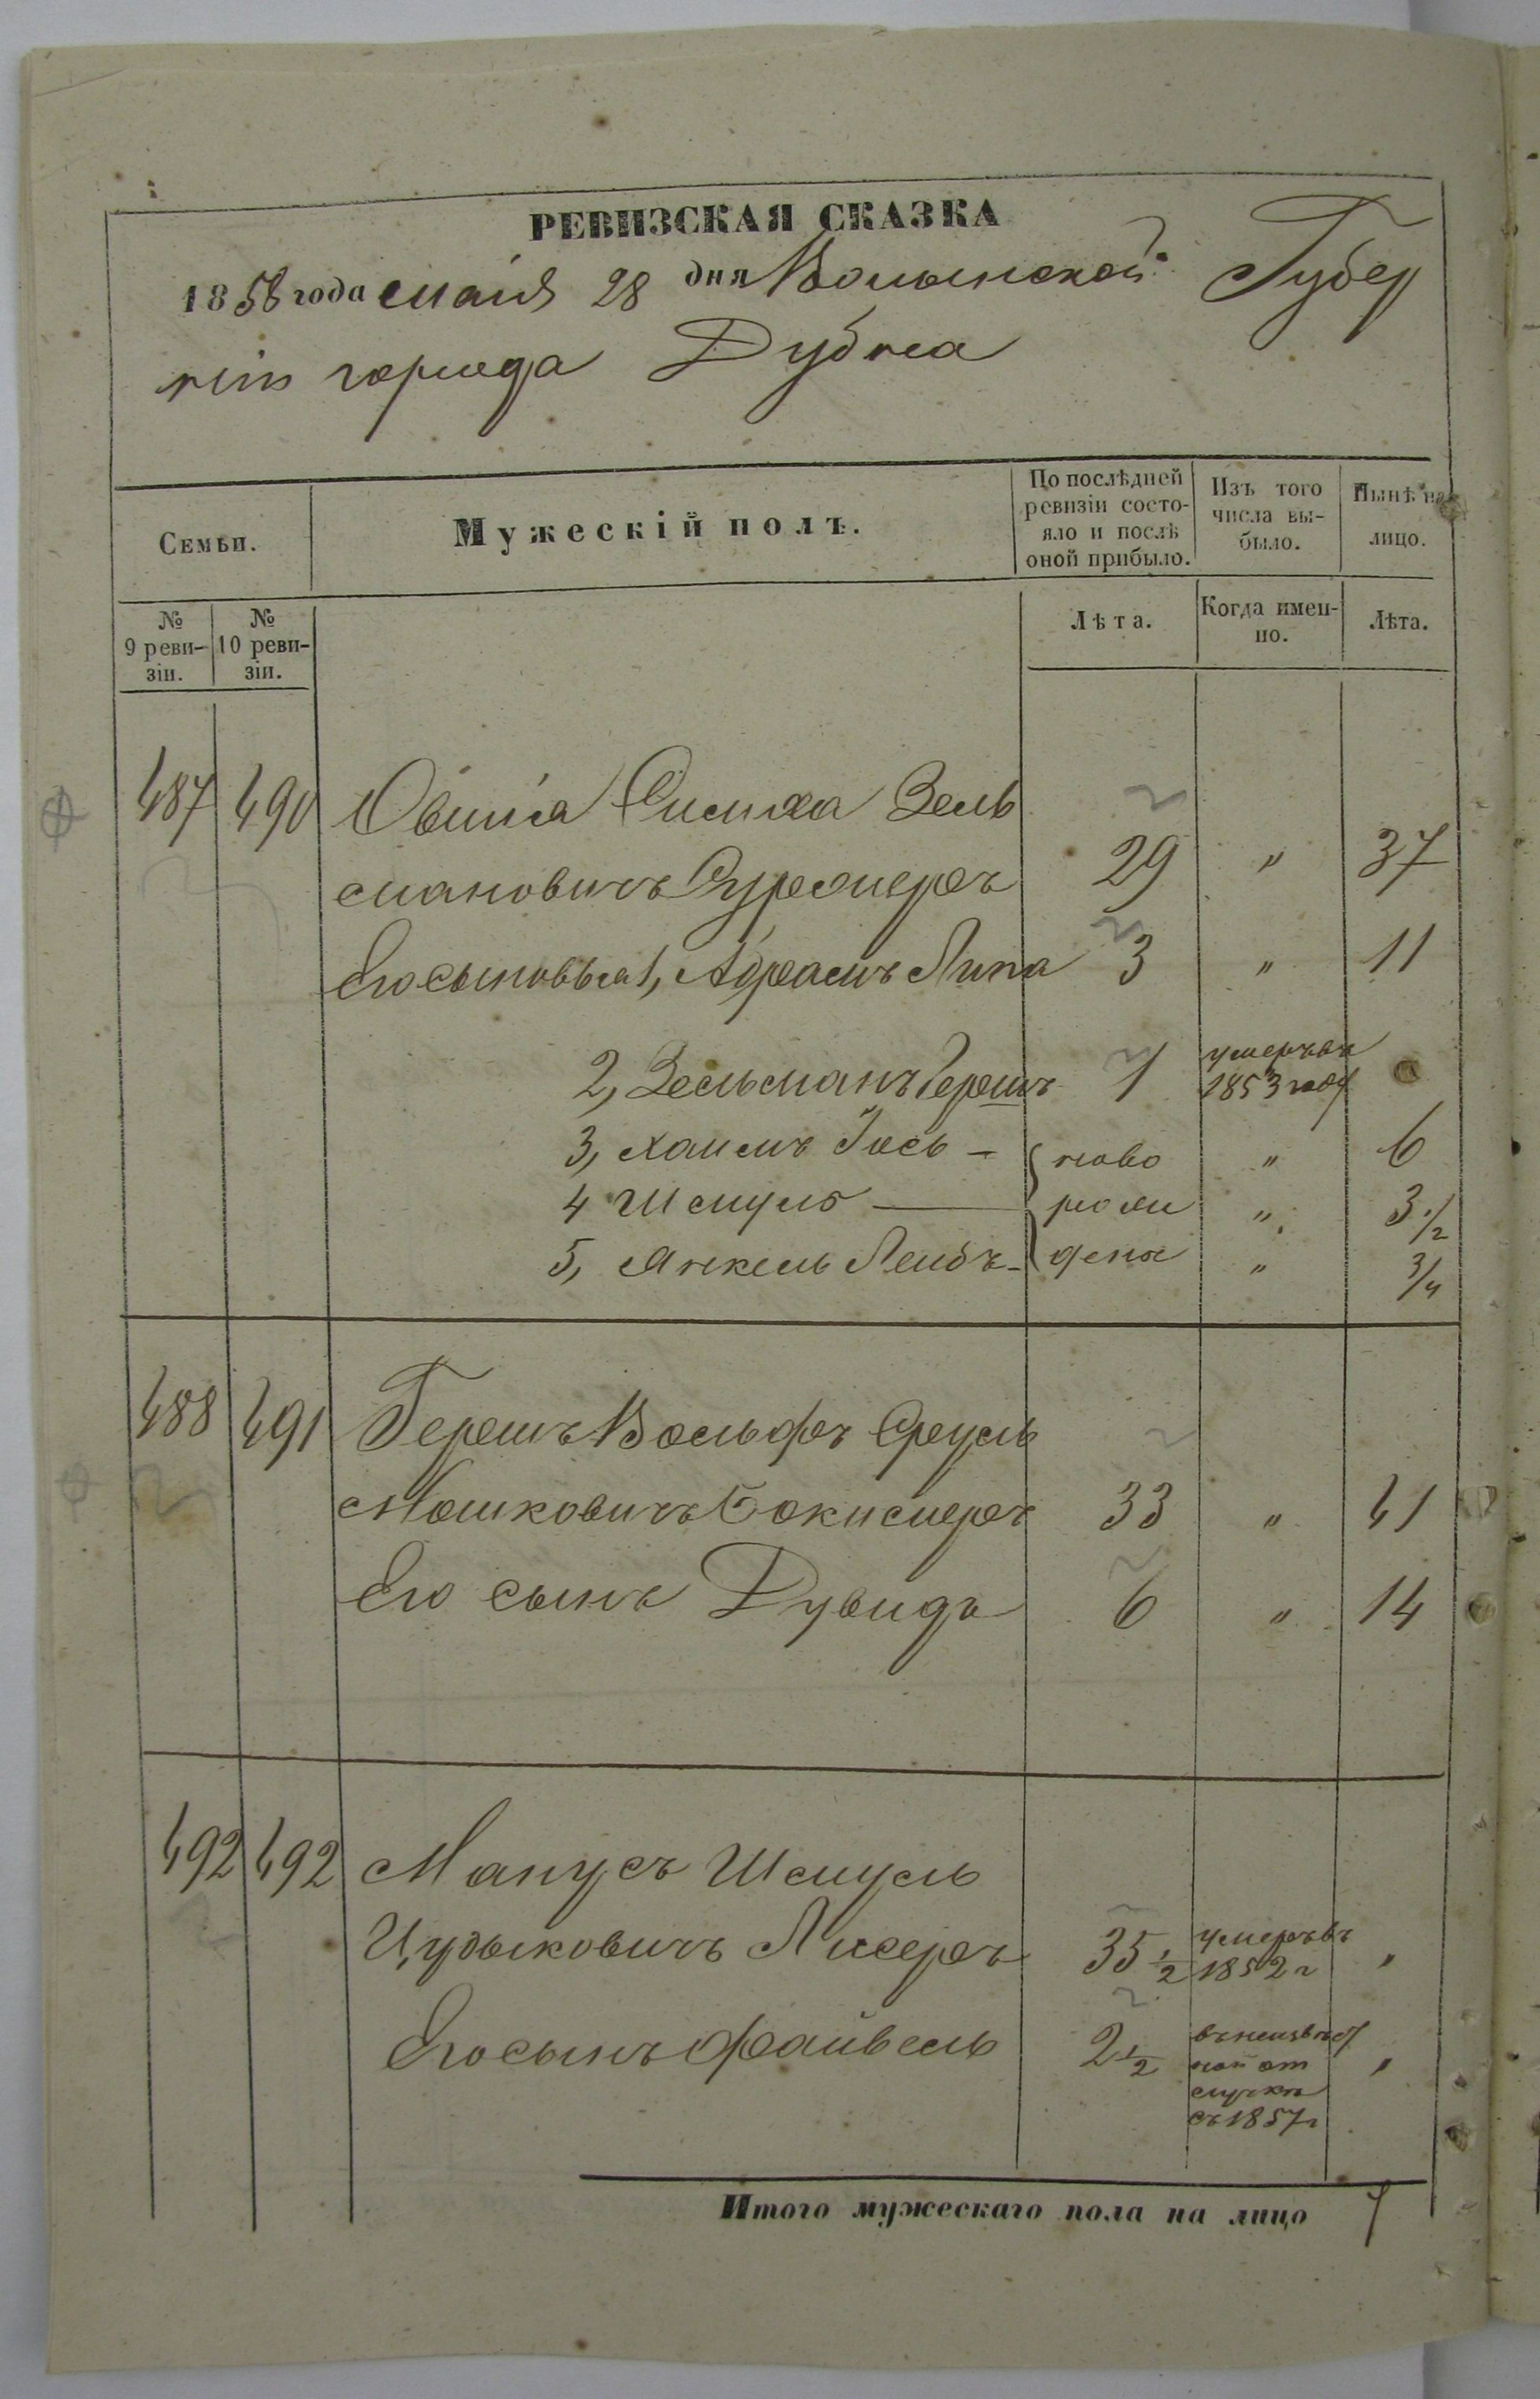 РЕВИЗСКАЯ СКАЗКА
1858 года Маія 28 дня Волынской Губер
ніи города Дубна
Семьи.
Мужескій полъ.
По послѣдней ревизіи состо-
яло и послѣ
оной прибыло.
Изъ того
числа вы-
было.
Нынѣ на
лицо.
№
9 реви-
зіи.
№
10 реви-
зіи.
Лѣта.
Когда имен-
но.
Лѣта.
487 490 Овшія Симха Зель
мановичъ 29 " 37
Его сыновья 1, Абрамъ Липа 3 " 11
2, Зельманъ Герешъ 1 умеръ въ
1853 году
3, Хаимъ Іось - ново " 6
4 Шмуль — рож " 3 1/2
5, Янкель Лейбъ - дены " 3/4
488 491 Герешъ Вольфъ Сруль
Мошковичъ 33 " 41
Его сынъ Дувидъ 6 " 14
492 492 Манусъ Шмуль
Цудыковичъ 35 1/2 умеръ въ
1852 г "
Его сынъ Файвель 2 1/2 въ неизвѣст
ной от
лучкѣ
съ 1857 г "
Итого мужескаго пола на лицо 7